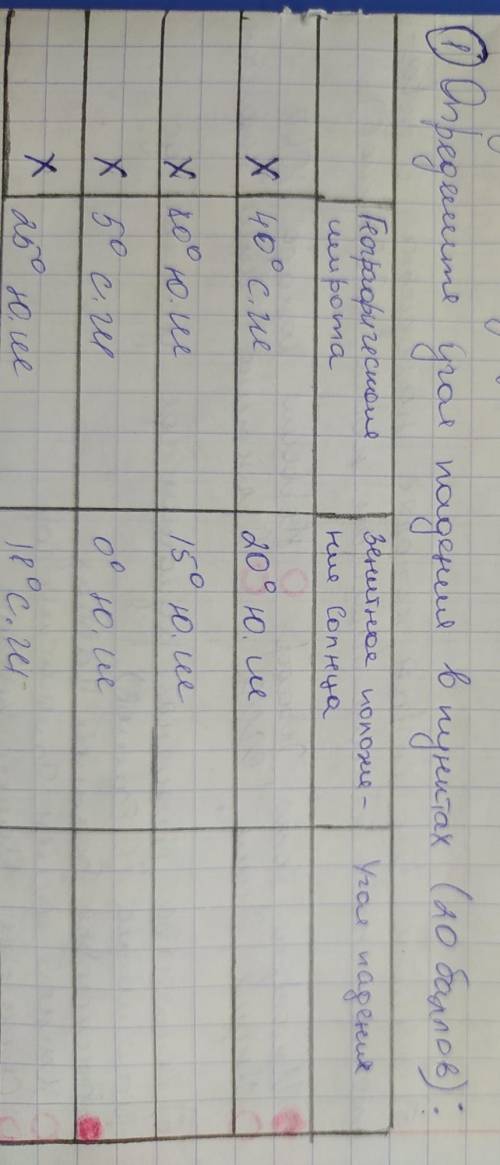 ① Определите угол падения в пунктах (20 баллов):
Географическая широта
зенитное положе-
ние Солнца
Угол падения
X 40° с.ш 20° ю.ш
X 80° ю.ш 15° ю.ш
X 5° с.ш 0° ю.ш
X 25° ю.ш 18° с.ш